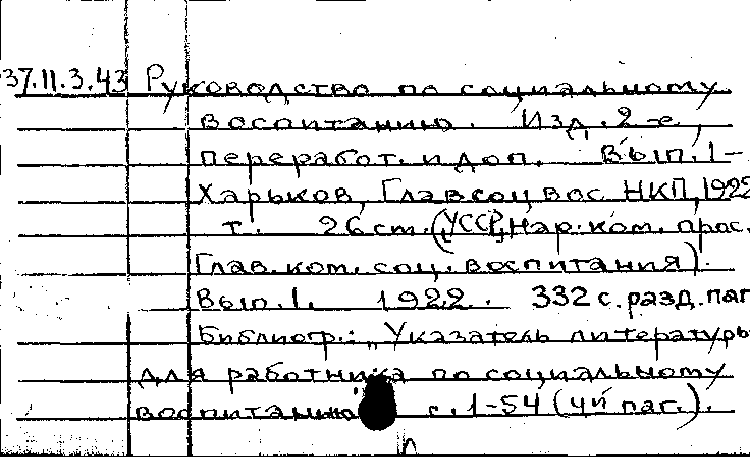 37.11.3.43 Руководство по социальному
воспитанию. Изд. 2-е,
переработ. и доп. Вып. 1-
Харьков, Главсоцвос НКП, 1922
т. 26 cm. (УССР, Нар. ком. прос.
Глав. ком. соц. воспитания).
Вып. 1. 1922. 332 с. разд. паг
Библиогр.: "Указатель литературы
для работника по социальному
воспитанию" с. 1-54 (4й паг.).